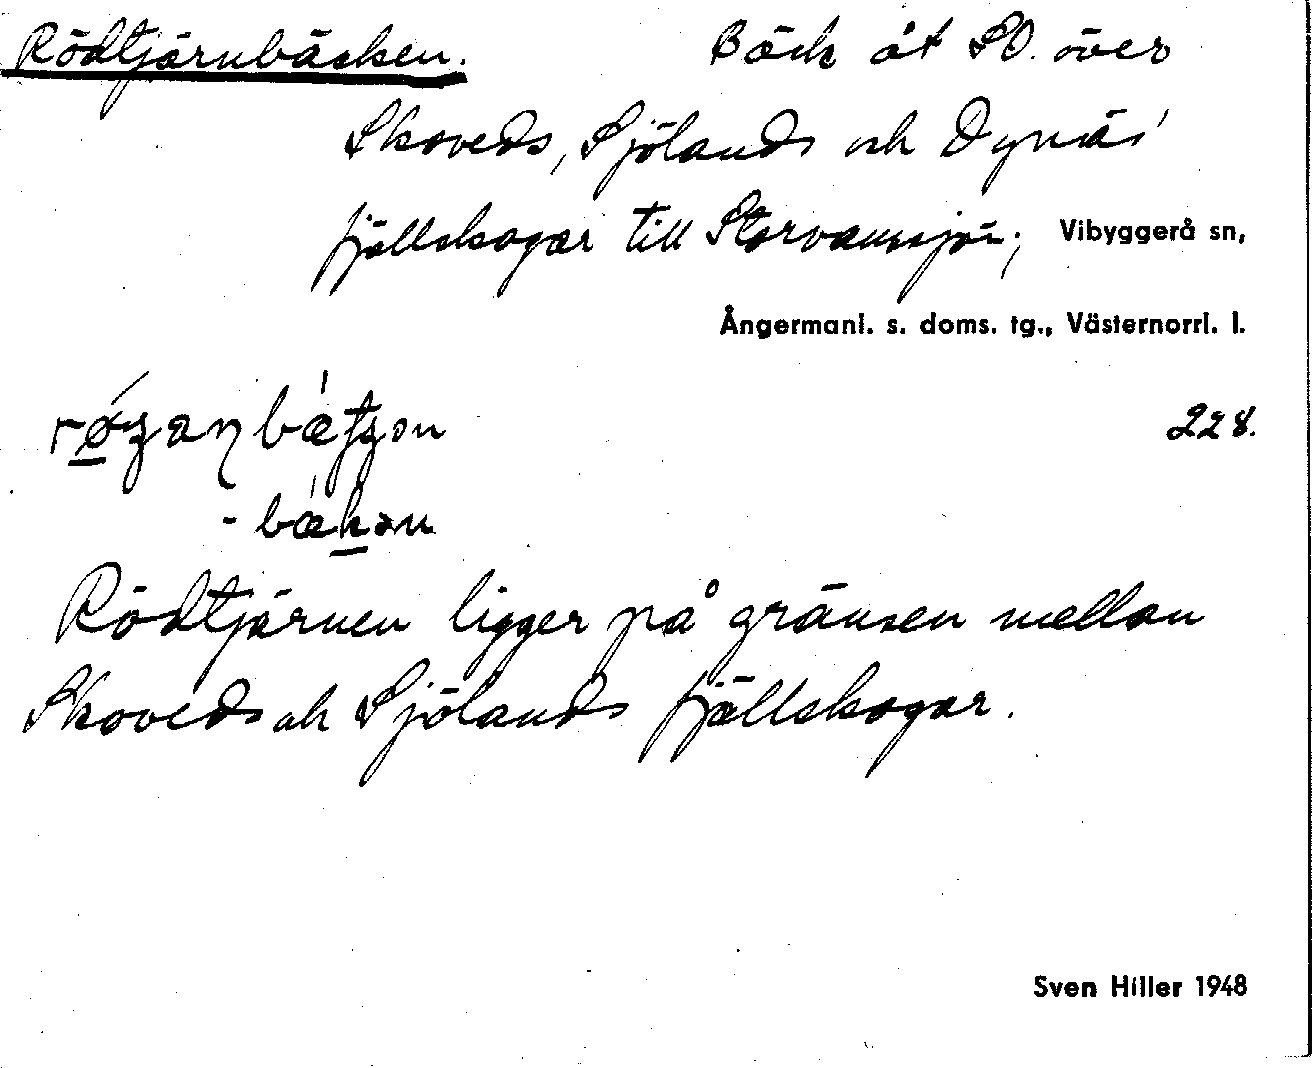 Rödtjärnbäcken. Bäck åt SO. över
Skoveds, Sjölands och Dynäs'
fjällskogar till Storvamsjön; Vibyggerå sn,
Ångermanl. s. doms. tg., Västernorrl. l.
228.
Rödtjärnen ligger på gränsen mellan
Skoveds och Sjölands fjällskogar.
Sven Hiller 1948